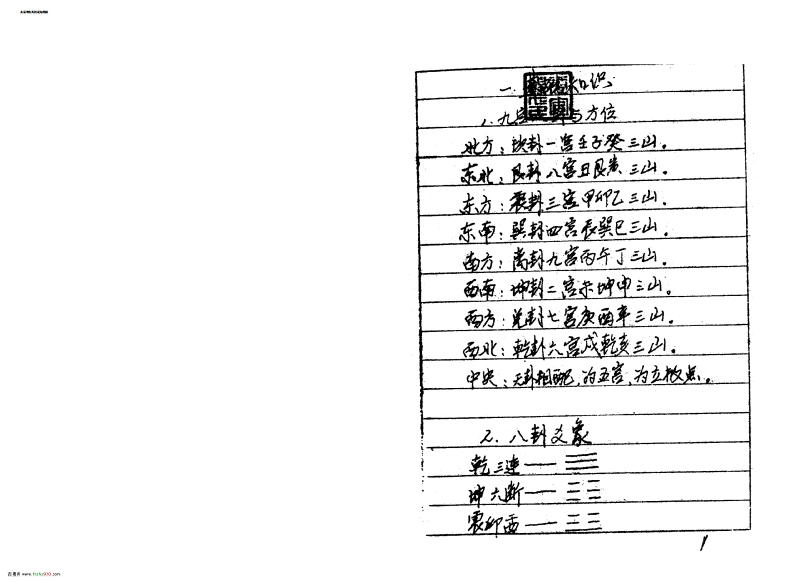 一、知识
1.九宫与方位
北方：坎卦一宫壬子癸三山。
东北：艮卦八宫丑艮寅三山。
东方：震卦三宫甲卯乙三山。
东南：巽卦四宫辰巽巳三山。
南方：离卦九宫丙午丁三山。
西南：坤卦二宫未坤申三山。
西方：兑卦七宫庚酉辛三山。
西北：乾卦六宫戍乾亥三山。
中央：无卦相配，为五宫，为立极点。
2.八卦爻象
乾三連——☰
坤六断——☷
震仰盂——☳
1